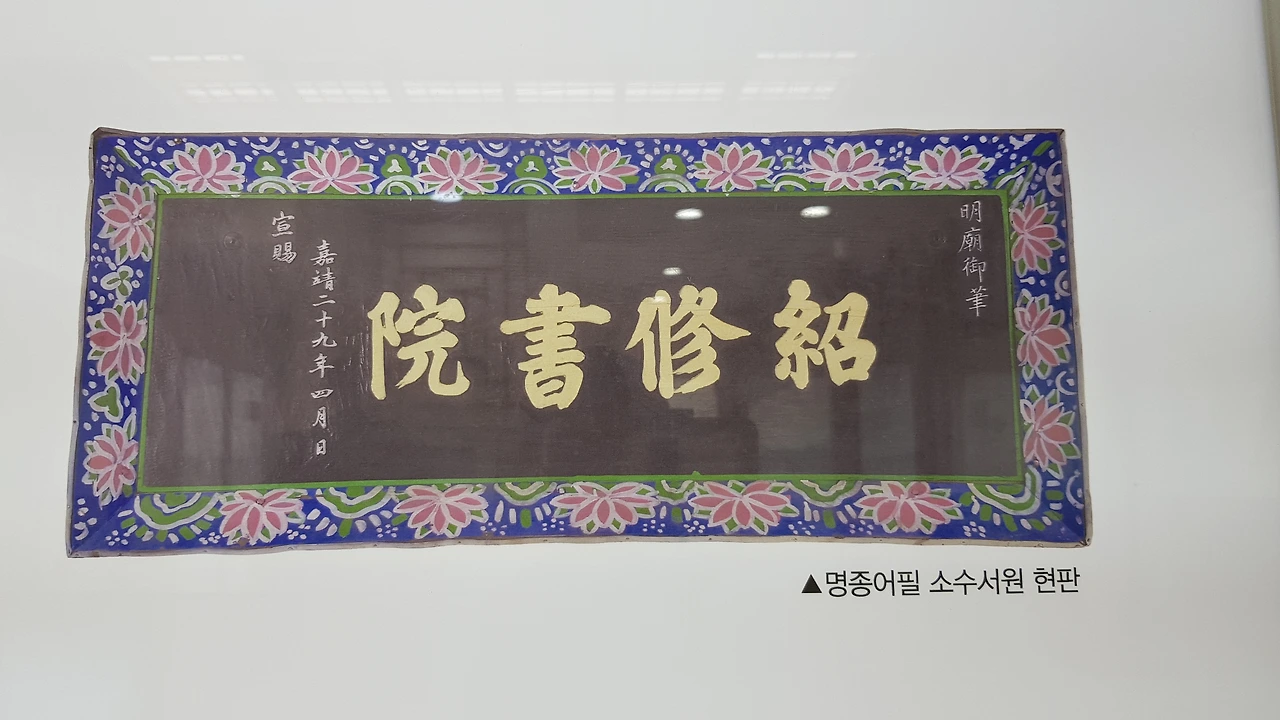 明廟御筆
紹修書院
嘉靖二十九年四月日
宣賜
▲명종어필 소수서원 현판